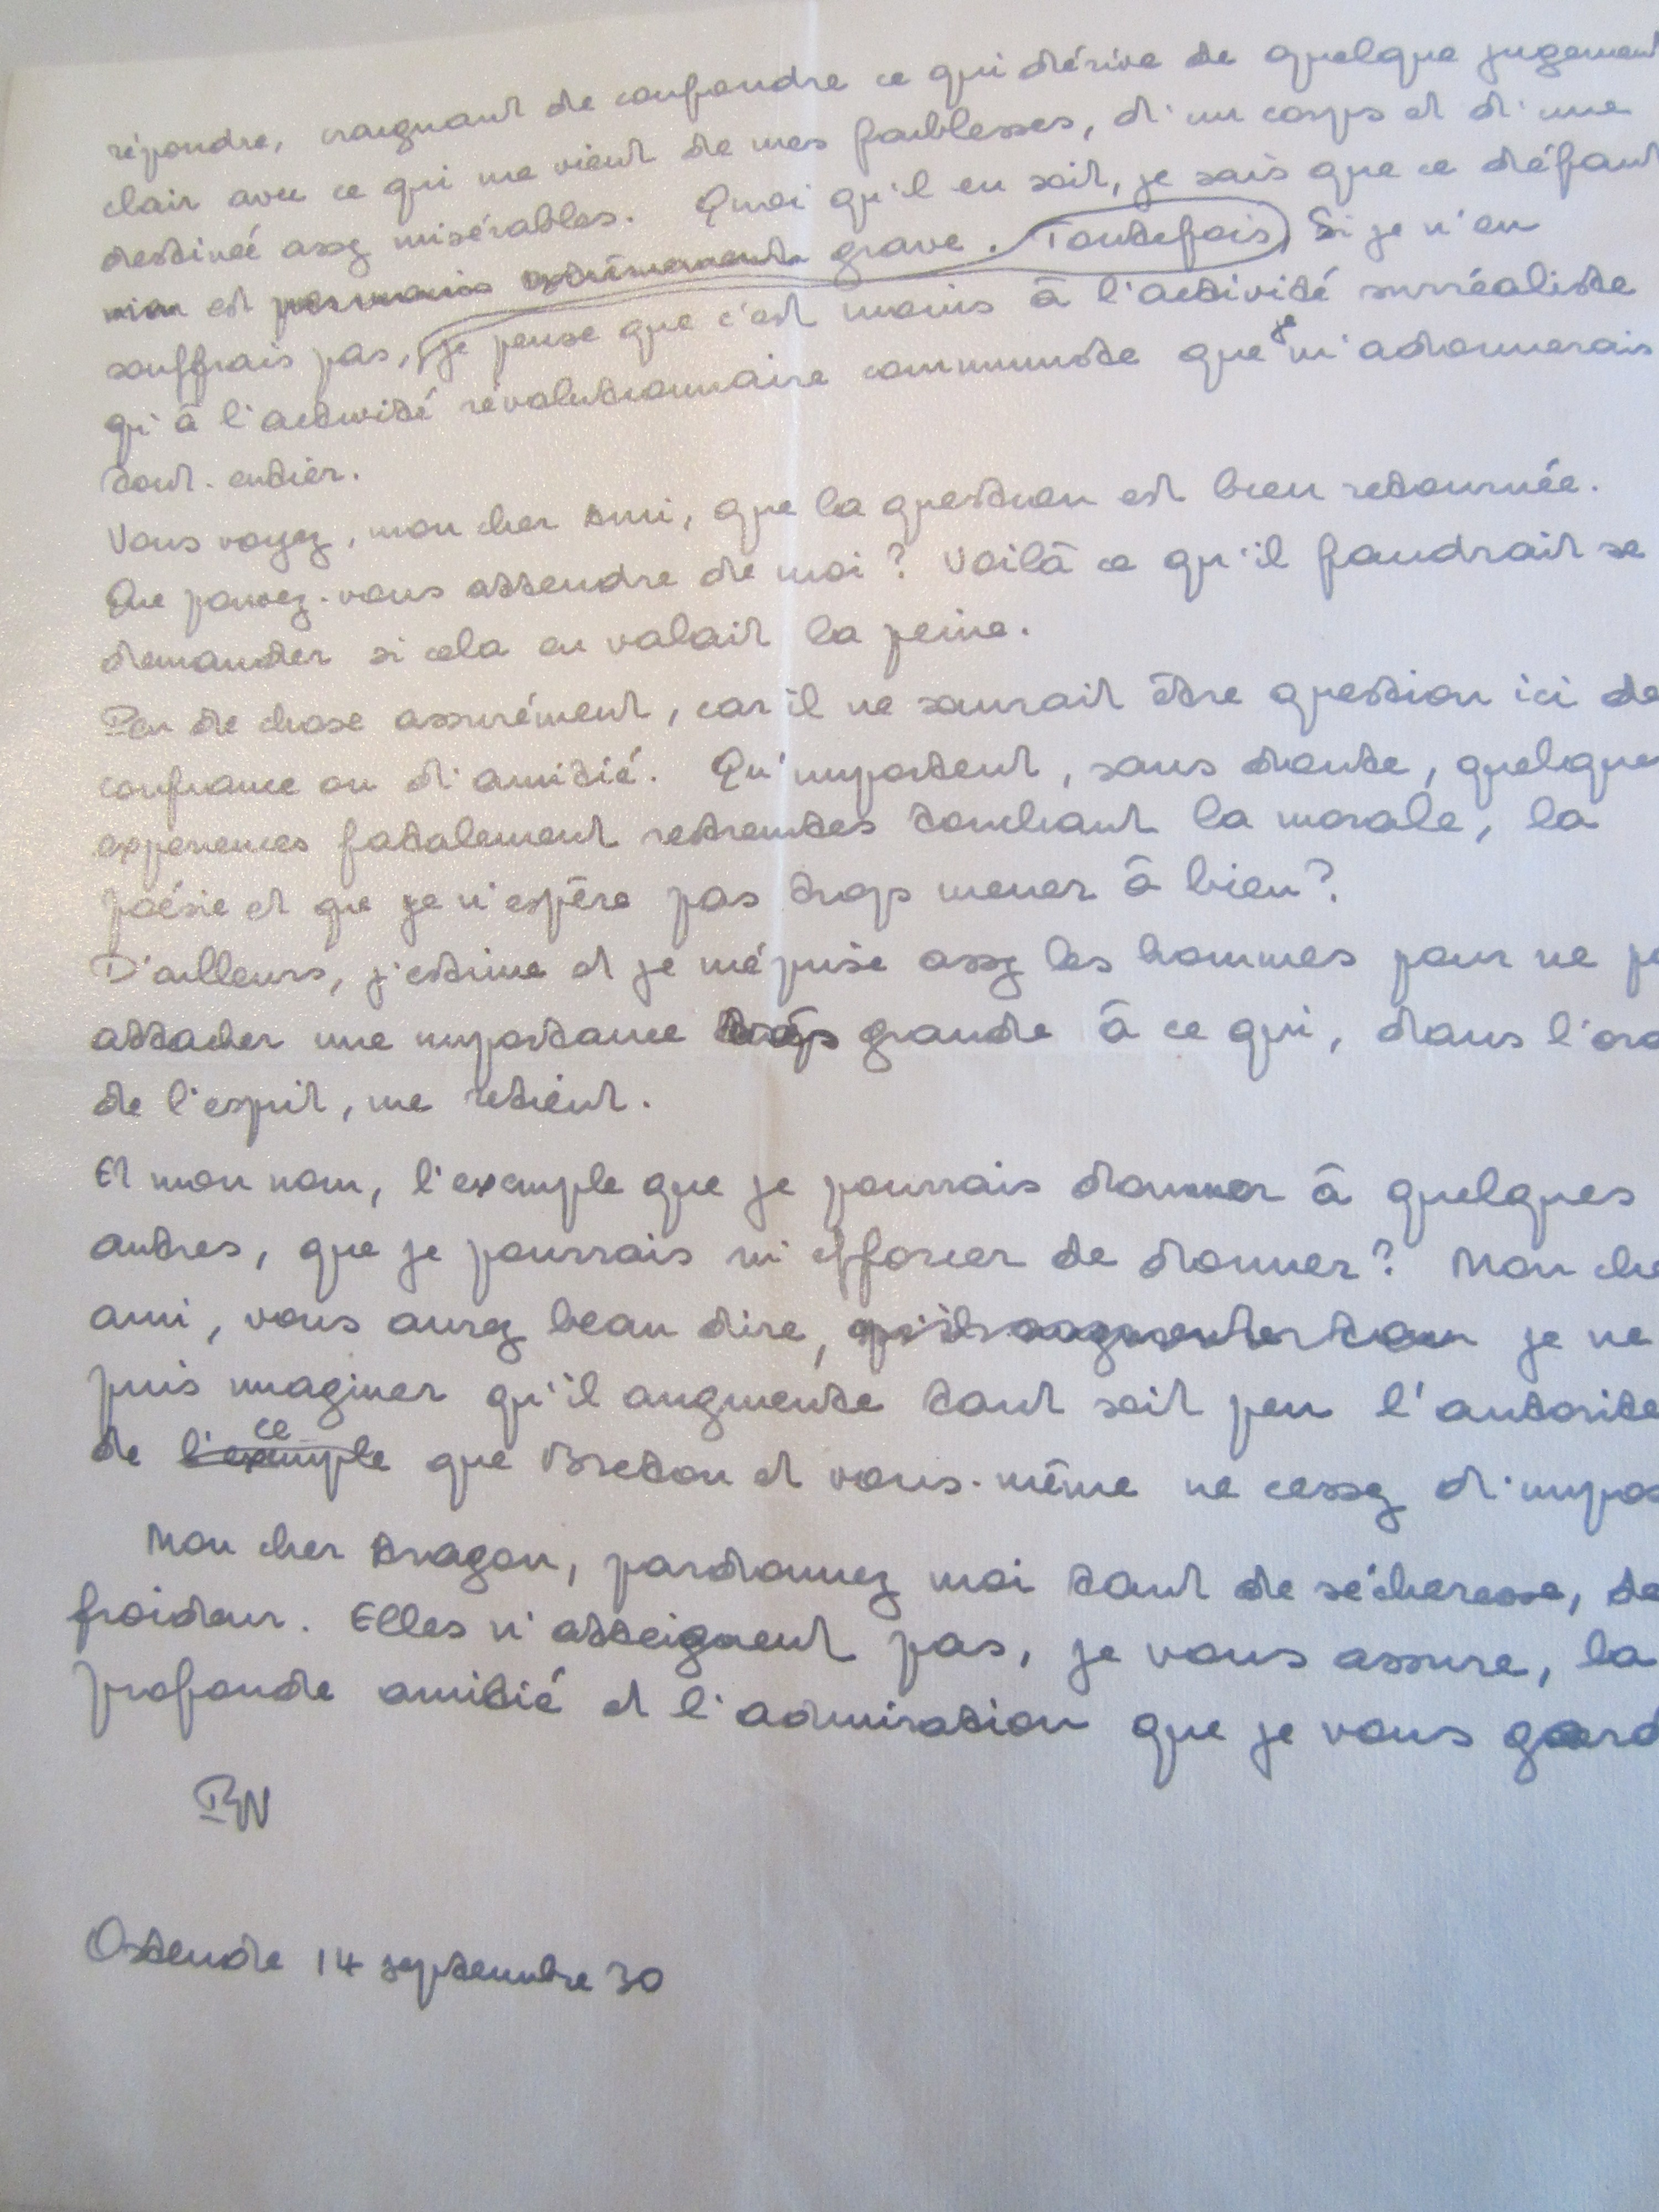 répondre, craignant de confondre ce qui dérive de quelque jugement
clair avec ce qui me vient de mes faiblesses, d'un corps et d'une
destinée assez misérables. Quoi qu'il en soit, je sais que ce défaut
mien est grave. Toutefois, Si je n'en
souffrais pas, je pense que c'est moins à l'activité surréaliste
qu'à l'activité révolutionnaire communiste que je m'adonnerais
tout-entier.
Vous voyez, mon cher Ami, que la question est bien retournée.
Que pouvez-vous attendre de moi ? Voilà ce qu'il faudrait se
demander si cela en valait la peine.
Peu de chose assurément, car il ne saurait être question ici de
confiance ou d'amitié. Qu'importent, sans doute, quelques
expériences fatalement restreintes touchant la morale, la
poésie et que je n'espère pas trop mener à bien ?
D'ailleurs, j'estime et je méprise assez les hommes pour ne p
attacher une importance grande à ce qui, dans l'ord
de l'esprit, me retient.
Et mon nom, l'exemple que je pourrais donner à quelques
autres, que je pourrais m'efforcer de donner ? Mon che
ami, vous aurez beau dire, je ne
puis imaginer qu'il augmente tant soit peu l'autorité
de l'exemple ce que Breton et vous-même ne cessez d'impos
Mon cher Aragon, pardonnez moi tant de sécheresse, de
froideur. Elles n'atteignent pas, je vous assure, la
profonde amitié et l'admiration que je vous gard
PN
Ostende 14 septembre 30